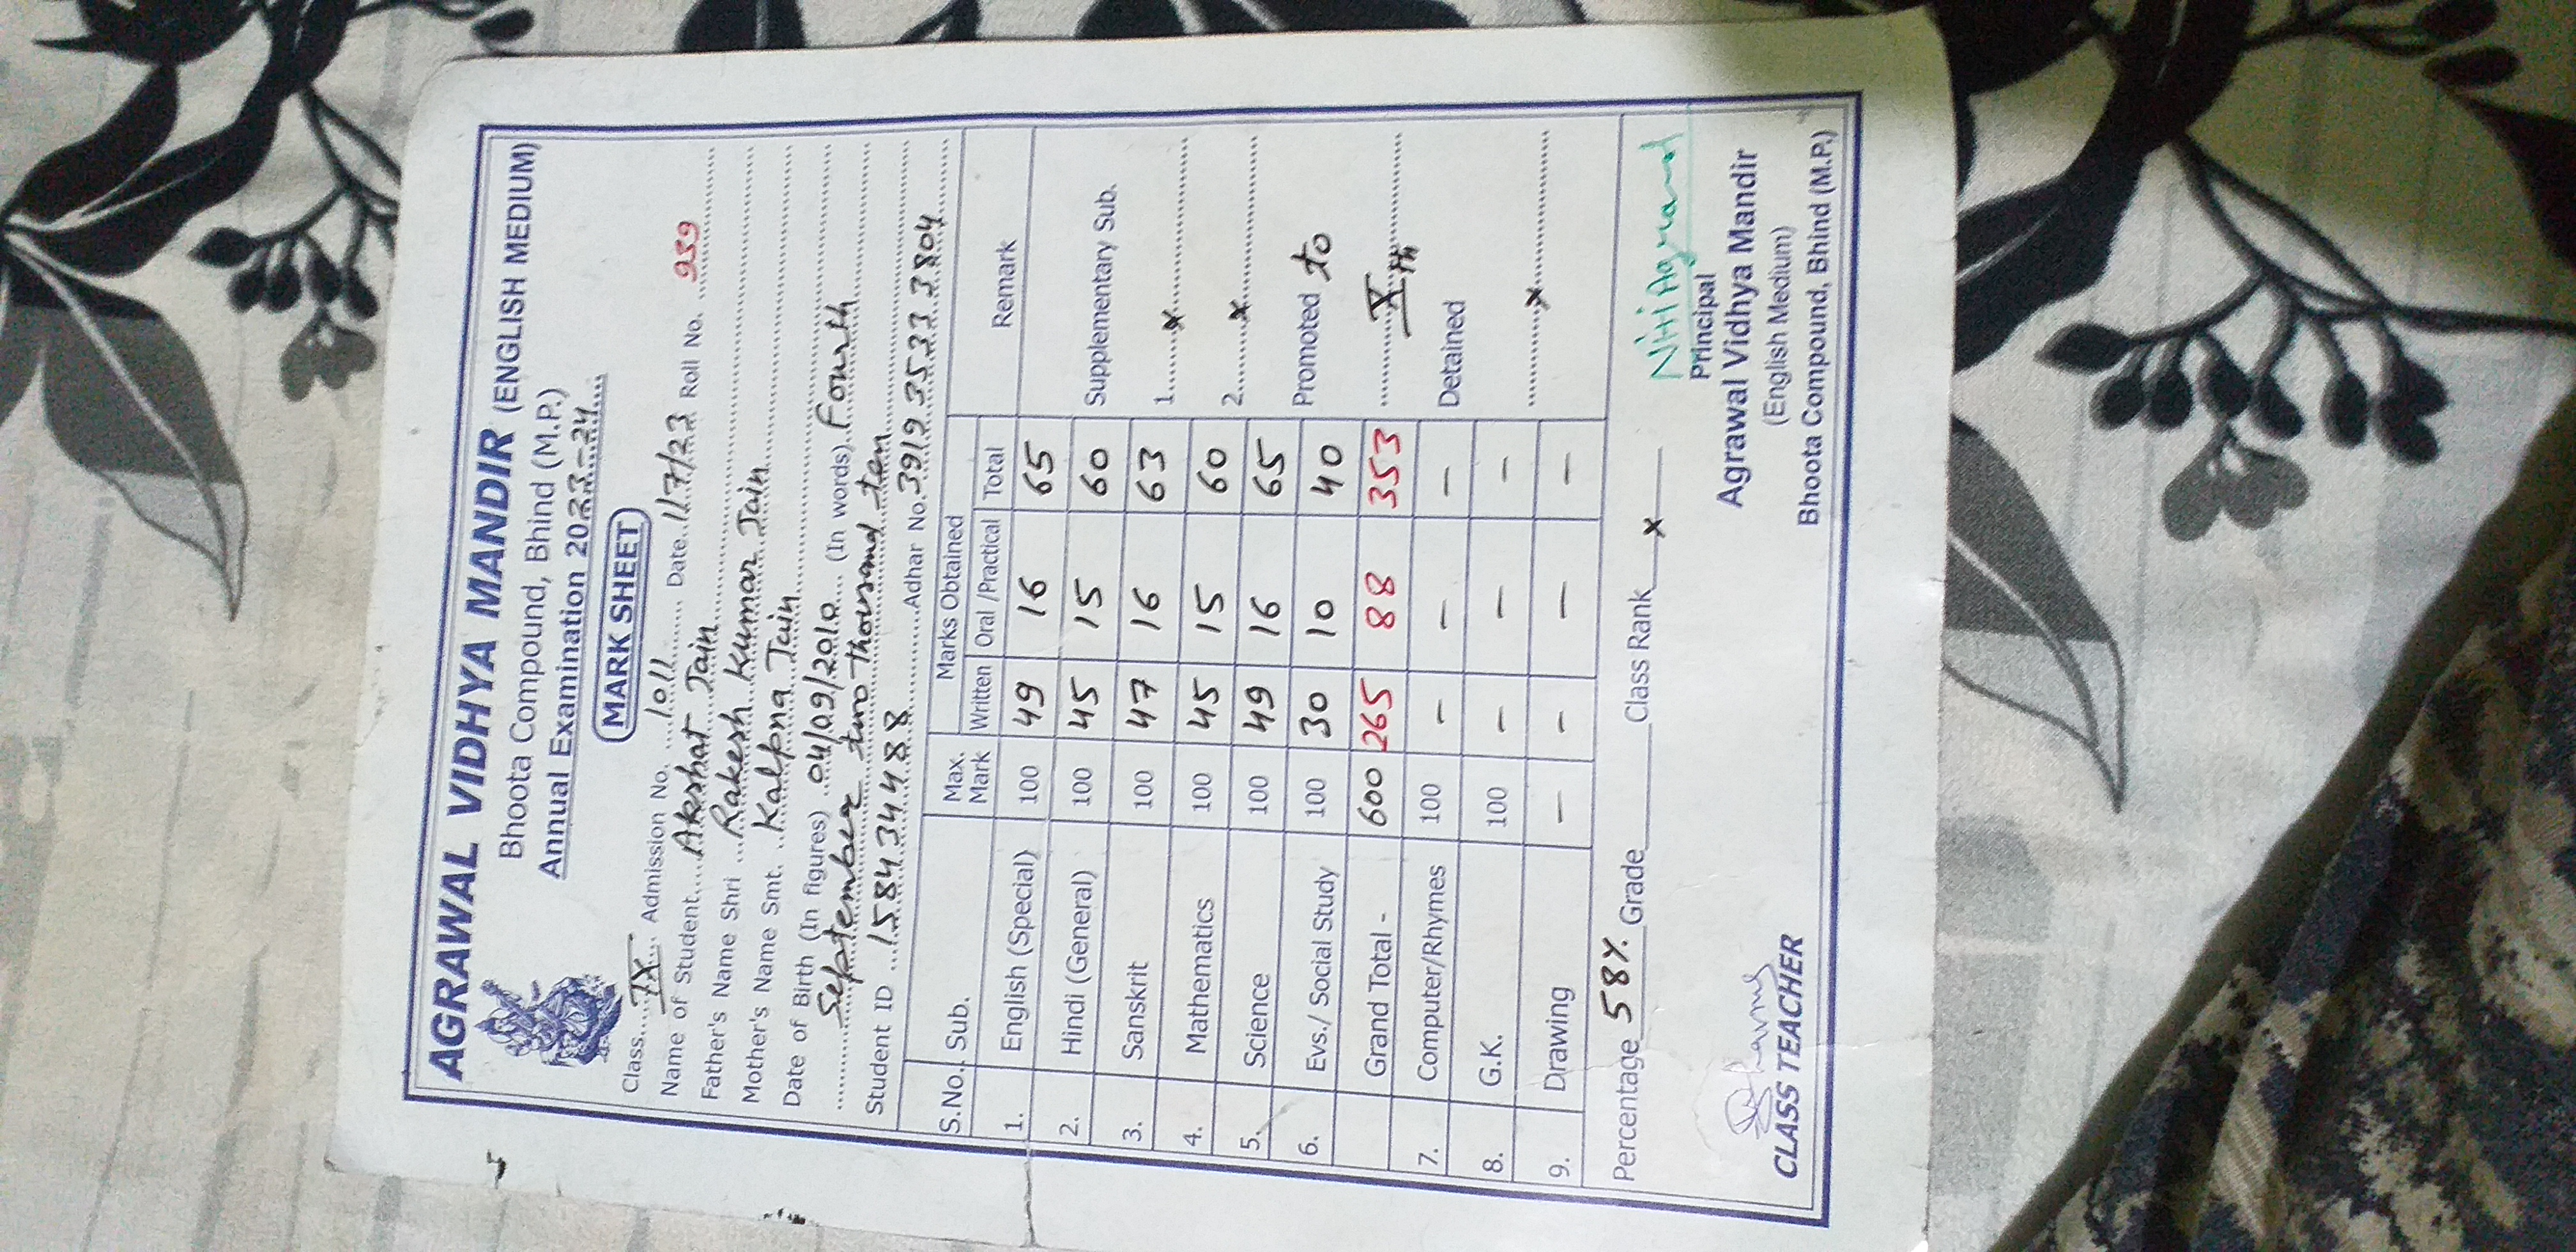 AGRAWAL VIDHYA MANDIR (ENGLISH MEDIUM)
Bhoota Compound, Bhind (M.P.)
Annual Examination 2023-24
MARK SHEET
Class IX Admission No. 1011 Date 1/7/23 Roll No. 959
Name of Student Akshat Jain
Father's Name Shri Rakesh Kumar Jain
Mother's Name Smt. Kalpna Jain
Date of Birth (In figures) 04/09/2010 (In words) Fourth
September two thousand ten
Student ID 158434488 Adhar No. 3919 3533 3804
S.No. Sub. Max. Mark Marks Obtained Remark
Written Oral /Practical Total
1. English (Special) 100 49 16 65
2. Hindi (General) 100 45 15 60 Supplementary Sub.
3. Sanskrit 100 47 16 63 1. x
4. Mathematics 100 45 15 60 2. x
5. Science 100 49 16 65
6. Evs./ Social Study 100 30 10 40 Promoted to
Grand Total - 600 265 88 353 Xth
7. Computer/Rhymes 100 - - - Detained
8. G.K. 100 - - -
9. Drawing - - - - x
Percentage 58% Grade Class Rank x
Niti Agrawal
Principal
CLASS TEACHER Agrawal Vidhya Mandir
(English Medium)
Bhoota Compound, Bhind (M.P.)